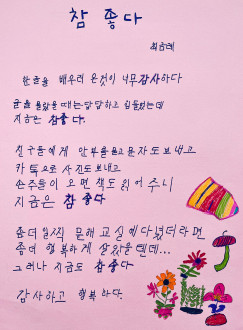 참 좋다
한글을 배우러 온것이 너무감사하다
글을 몰랐을 때는답답하고 힘들었는데
지금은 참좋다.
친구들에게 안부를묻고문자도보내고
카톡으로 사진도보내고
손주들이 오면 책도 읽어 주니
지금은 참좋다
좀더일찍 문해교실에다녔더라면
좀더 행복하게 살았을텐데...
그러나 지금도 참좋다
감사하고 행복하다.